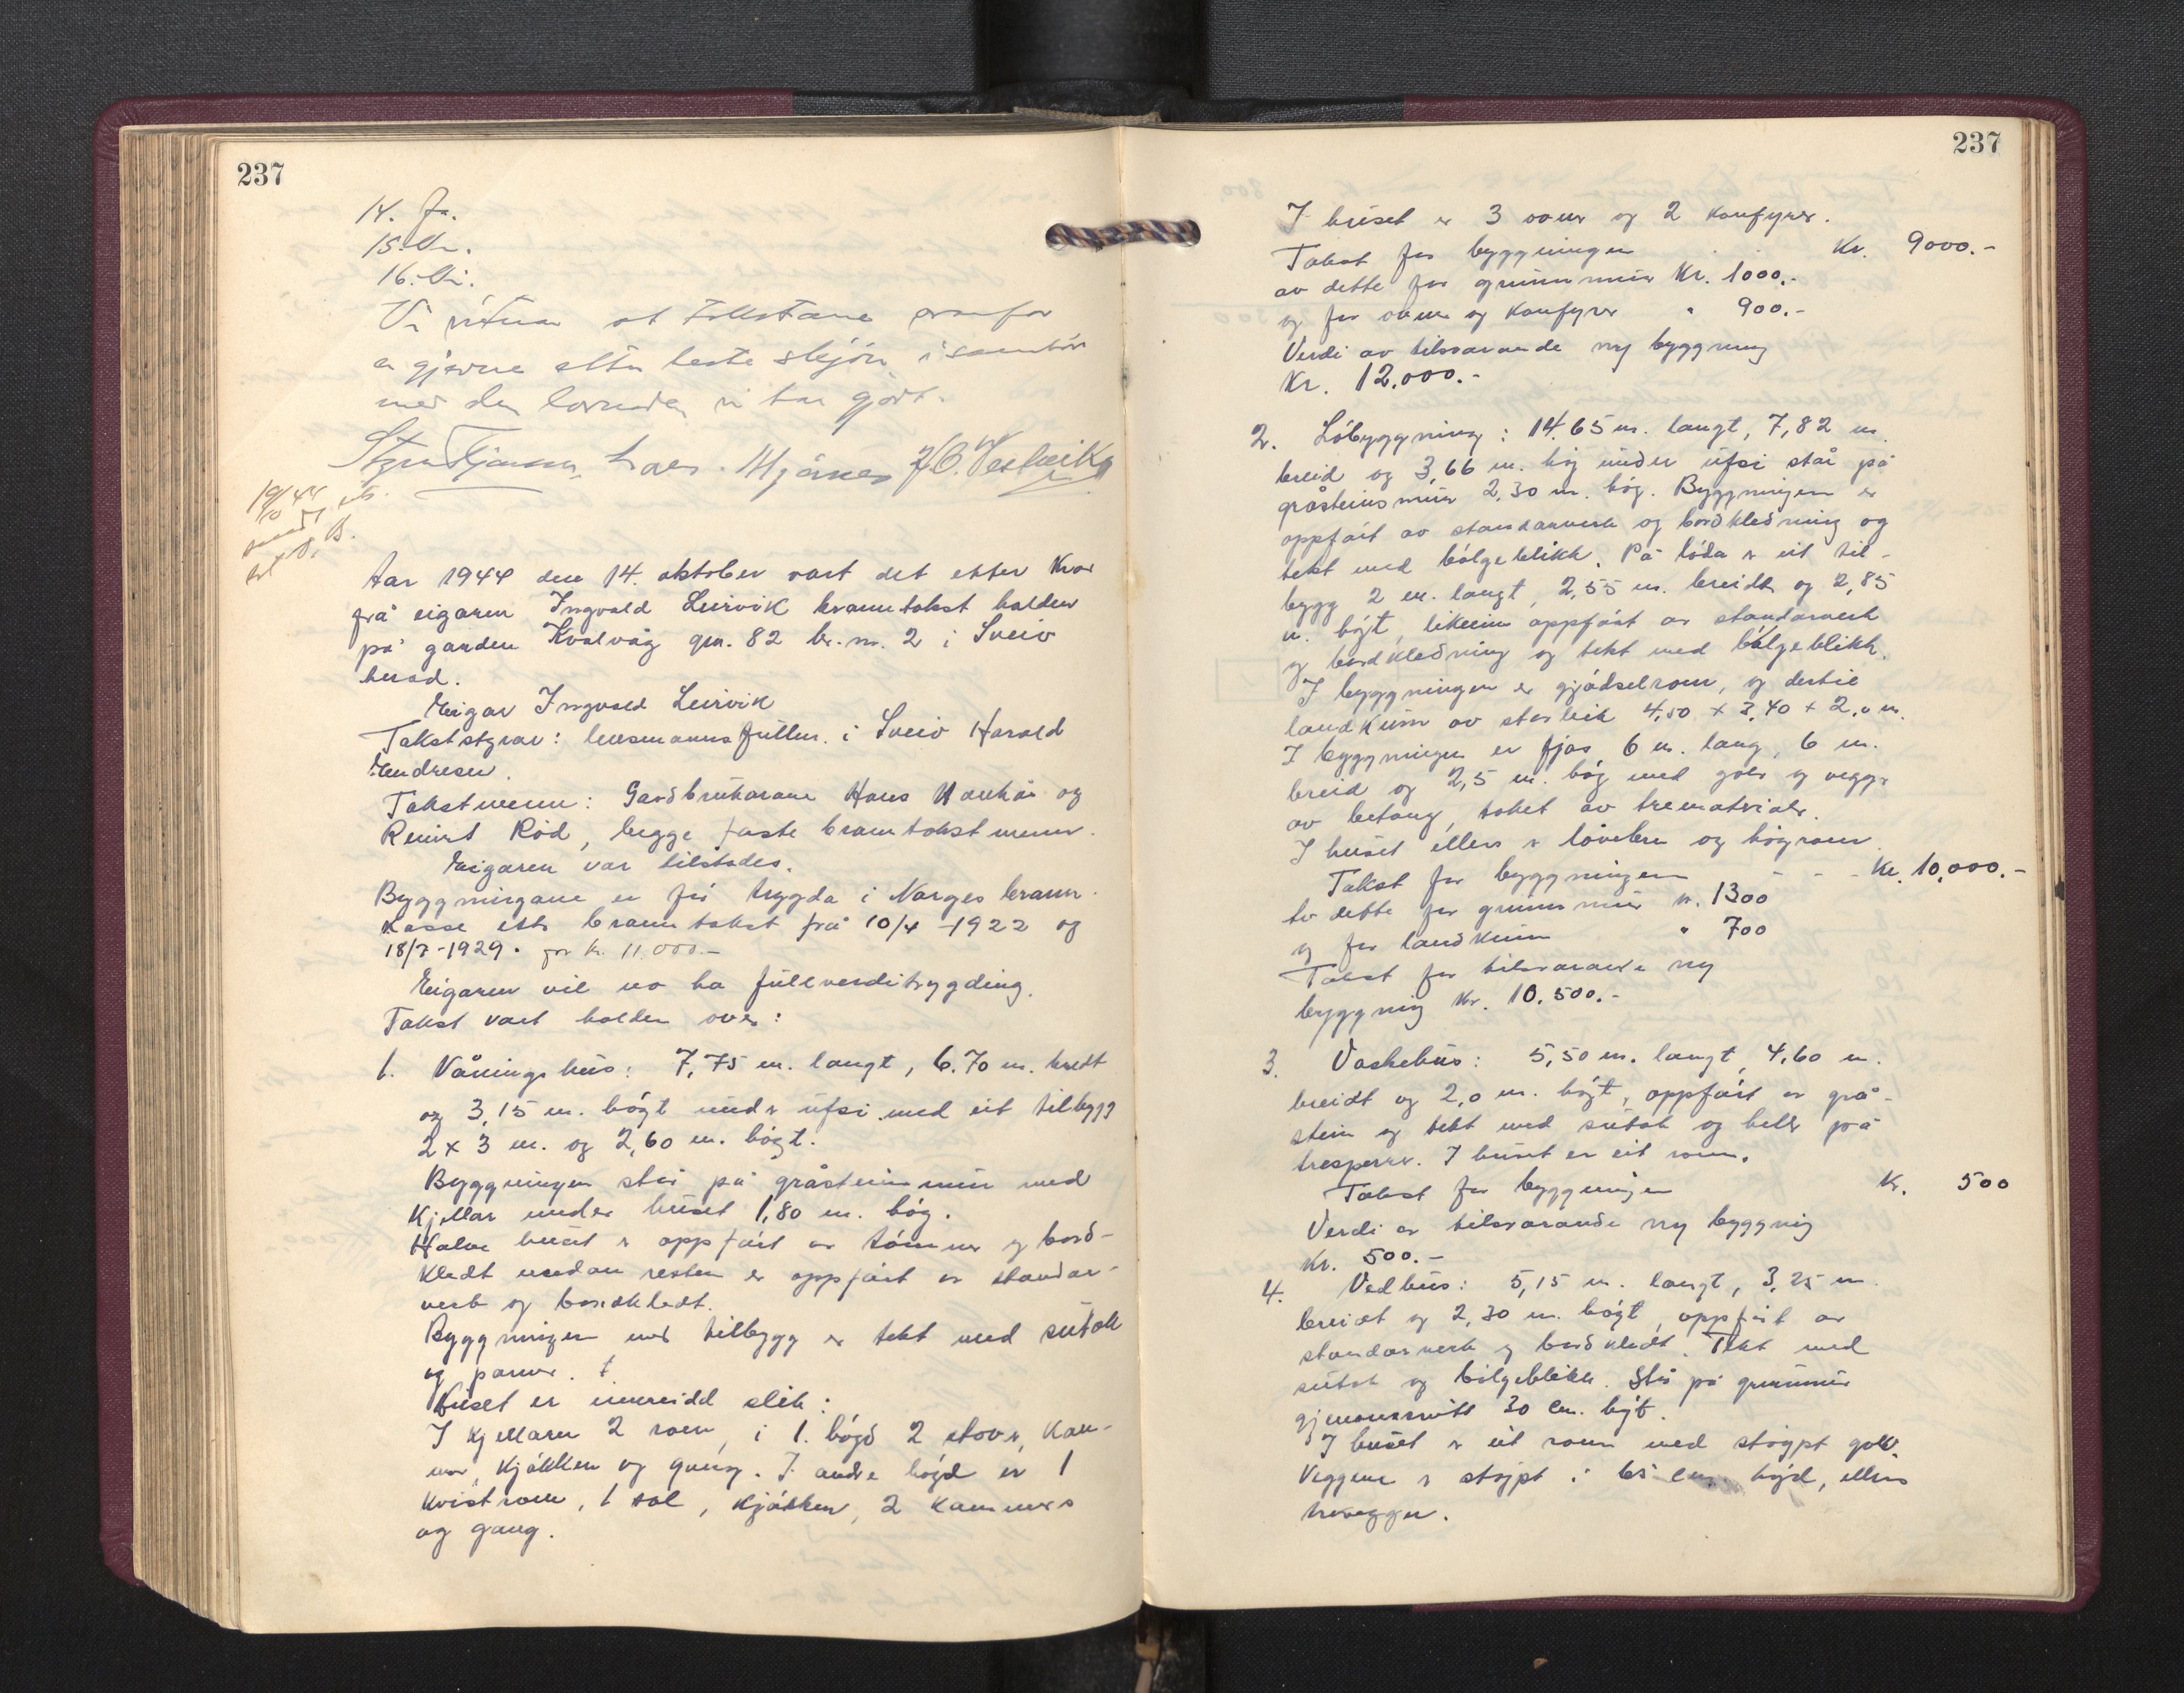 237
14. Ja.
15. Nei.
16. Nei.
Vi vitnar at takstane ovanfor
er gjevne etter beste skjön i samhöve
med den lovnaden vi har gjort.
Lars Mjånes
19/10 44 uts.
sendt
N. B.
Aar 1944 den 14. oktober vart det etter krav
frå eigaren Ingvald Leirvik branntakst halden
på garden Kvalvåg gn. 82 br. nr. 2 i Sveio
herad.
Eigar Ingvald Leirvik
Takststyrar: lensmannsfullm. i Sveio Harald
Endresen.
Takstmenn: Gardbrukarane Hans Haukås og
Reinert Röd, begge faste branntakstmenn.
Eigaren var tilstades.
Byggningane er frå trygda i Norges brann-
kasse etter branntakst frå 10/4 -1922 og
18/7-1929. for kr. 11.000.-
Eigaren vil no ha fullverditrygding.
Takst vart halden over:
1. Våningshus: 7,75 m. langt, 6.70 m. bredt
og 3,15 m. högt under ufsi med eit tilbygg
2 x 3 m. og 2,60 m. högt.
Byggningen står på gråsteinmur med
kjellar under huset 1,80 m. hög.
Halve huset er oppfört av tömmer og bord-
kledt medan resten er oppfört av standar-
verk og bordkledt.
Byggningen med tilbygg er tekt med sutak
og panner.
Huset er innreidd slik:
I kjellaren 2 rom, i 1. högd 2 stover, kam-
mer, kjökken og gang. I andre högd er 1
kvistrom, 1 sal, kjökken, 2 kammers
og gang.
237
I huset er 3 ovner og 2 komfyrer.
Takst for byggningen Kr. 9000.-
av dette for grunnmur Kr. 1000.-
og for ovner og komfyrer " 900.-
Verdi av tilsvarande ny byggning
Kr. 12.000.-
2. Löbyggning: 14.65 m. langt, 7,82 m.
breid og 3,66 m. hög under ufsi står på
gråsteinsmur 2,30 m. hög. Byggningen er
oppfört av standarverk og bordkledning og
tekt med bölgeblikk. På löda er eit til-
bygg 2 m. langt, 2,55 m. breidt og 2,85
m. högt, likeeins oppfört av standarverk
og bordkledning og tekt med bölgeblikk.
I byggningen er gjödselrom, og dertil
landkum av storleik 4,50 x 3,40 x 2,0 m.
I byggningen er fjøs 6 m. lang, 6 m.
breid og 2,5 m. hög med golv og vegger
av betong, taket av trematerialer.
I huset ellers er lövebru og höyrom.
Takst for byggningen - - - Kr. 10,000.-
Av dette for grunnmur kr. 1300
og for landkum " 700
Takst for tilsvarande ny
byggning Kr. 10.500.-
3. Vaskehus: 5,50 m. langt, 4,60 m.
breidt og 2,0 m. högt, oppfört av grå-
stein og tekt med sutak og heller på
tresperrer. I huset er eit rom.
Takst for byggningen Kr. 500
Verdi av tilsvarande ny byggnig
Kr. 500.-
4. Vedhus: 5,15 m. langt, 3,25 m.
breidt og 2,30 m. högt, oppfört av
standarverk og bordkledt. Tekt med
sutak og bölgeblikk. Står på grunnmur
gjenomsnitt 30 cm. högt.
I huset er eit rom med stöypt golv.
Veggene er stöypt i 65 cm. höyd, ellers
trevegger.